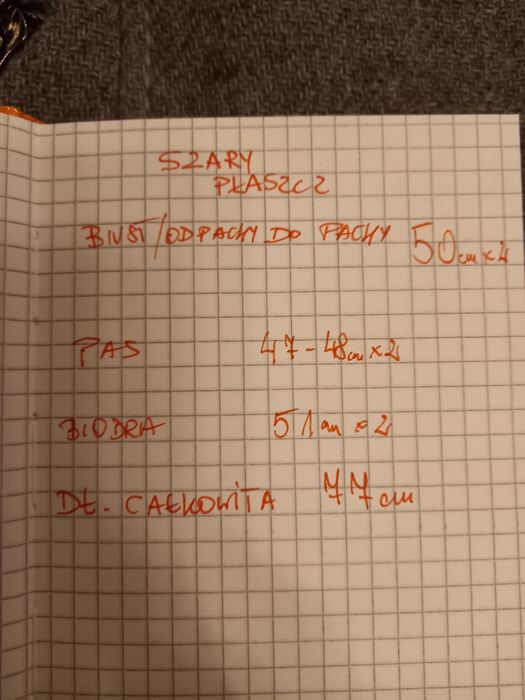 SZARY
PŁASZCZ
BIUST/OD PACHY DO PACHY 50cm x2
PAS 47-48cm x2
BIODRA 51cm x2
DŁ. CAŁKOWITA 77cm